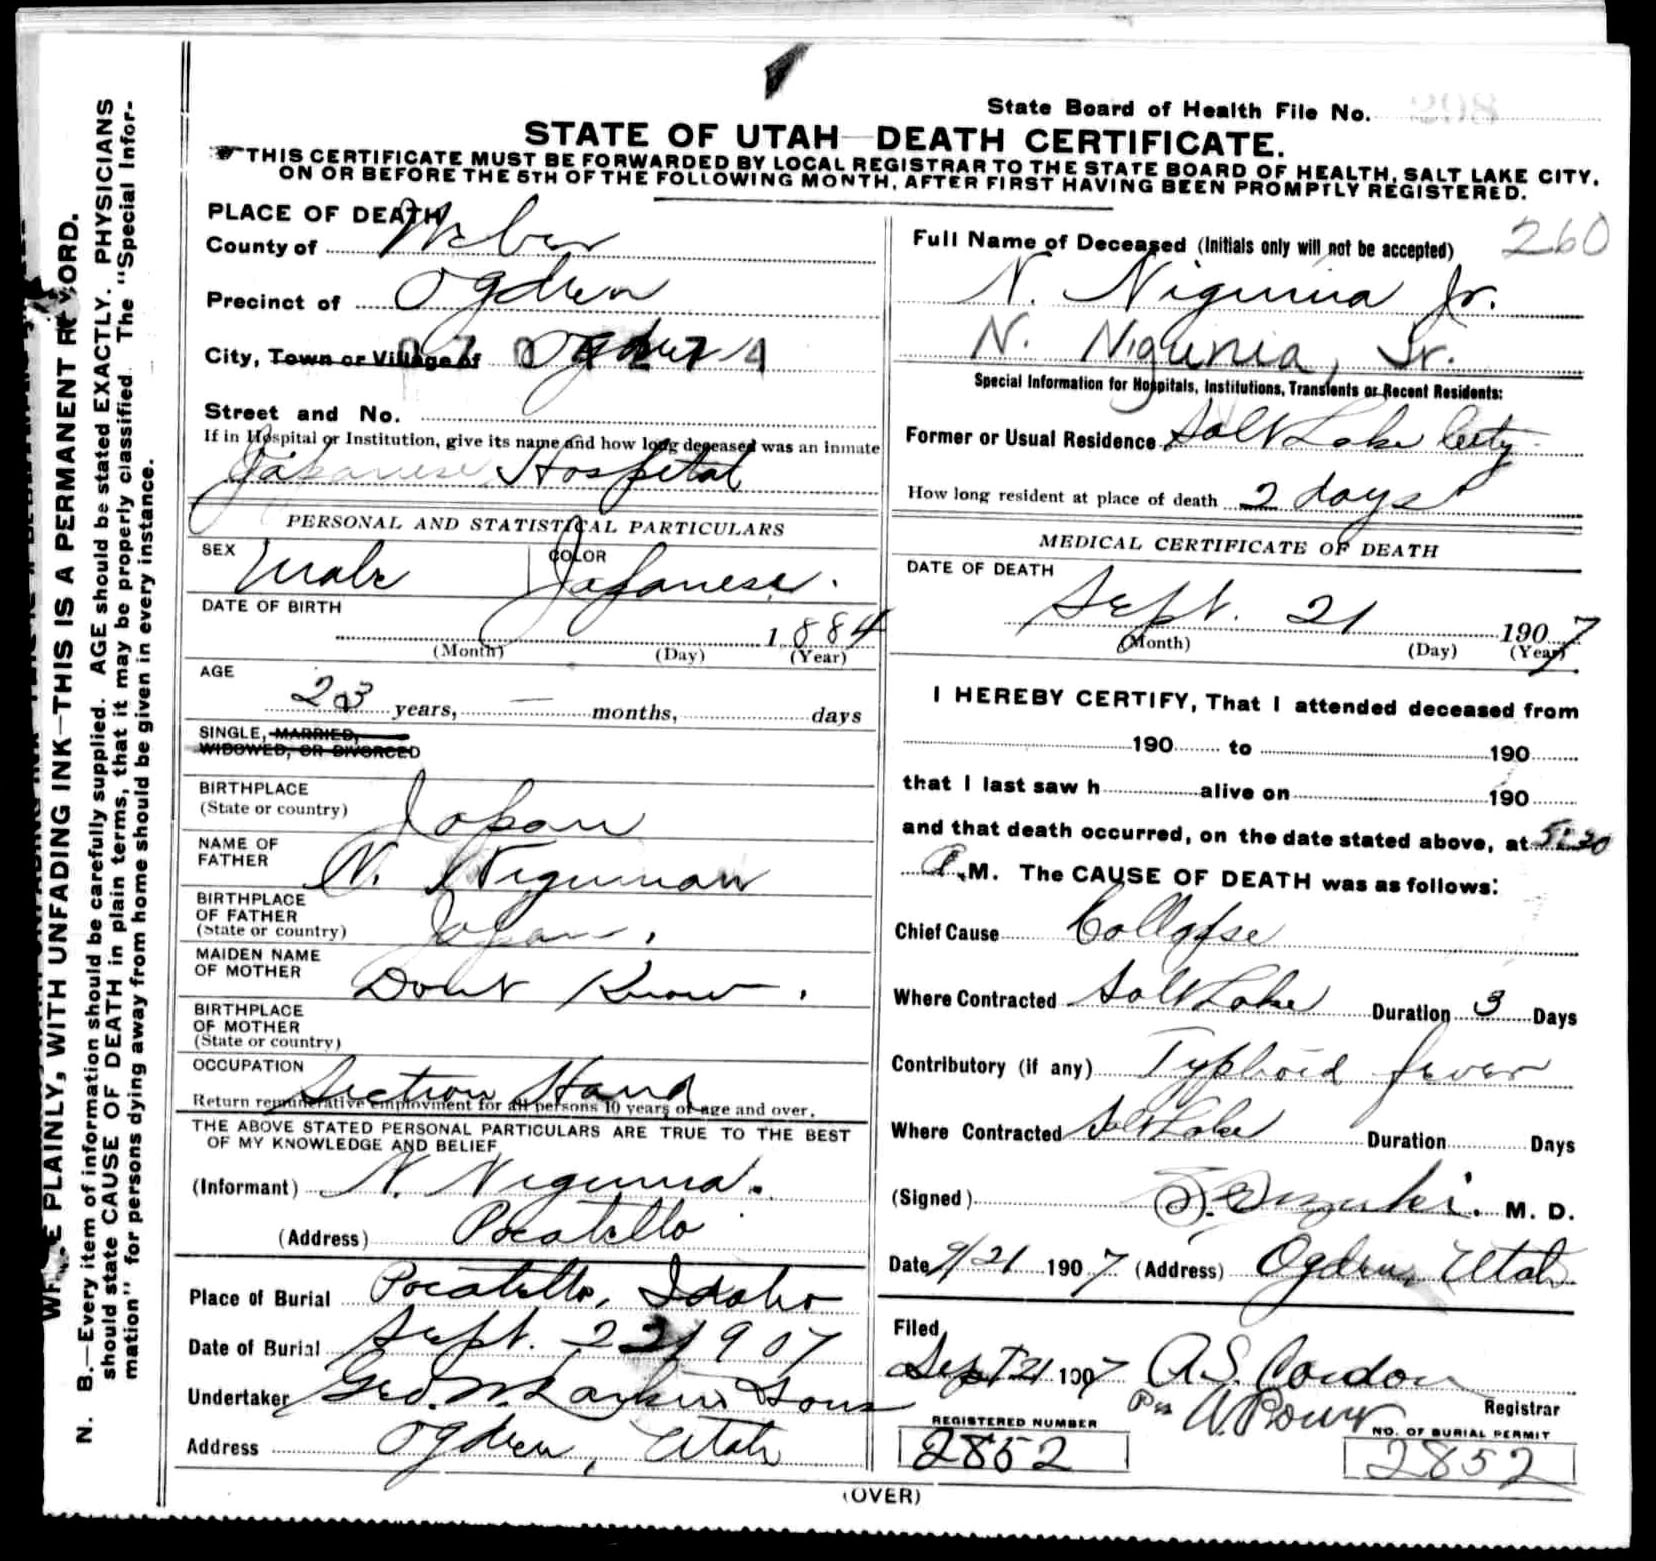 State Board of Health File No. 298
STATE OF UTAH—DEATH CERTIFICATE.
THIS CERTIFICATE MUST BE FORWARDED BY LOCAL REGISTRAR TO THE STATE BOARD OF HEALTH, SALT LAKE CITY,
ON OR BEFORE THE 5TH OF THE FOLLOWING MONTH, AFTER FIRST HAVING BEEN PROMPTLY REGISTERED.
PLAINLY, WITH UNFADING INK—THIS IS A PERMANENT RECORD.
N. B.—Every item of information should be carefully supplied. AGE should be stated EXACTLY. PHYSICIANS
should state CAUSE OF DEATH in plain terms, that it may be properly classified. The "Special Infor-
mation" for persons dying away from home should be given in every instance.
PLACE OF DEATH
County of Weber
Precinct of Ogden
City, Town or Village of Ogden
Street and No.
If in Hospital or Institution, give its name and how long deceased was an inmate
Japanese Hospital
PERSONAL AND STATISTICAL PARTICULARS
SEX Male COLOR Japanese.
DATE OF BIRTH
1884
(Month) (Day) (Year)
AGE
23 years, — months, days
SINGLE, MARRIED,
WIDOWED, OR DIVORCED
BIRTHPLACE
(State or country) Japan
NAME OF
FATHER N. Niguman
BIRTHPLACE
OF FATHER
(State or country) Japan.
MAIDEN NAME
OF MOTHER Dont Know.
BIRTHPLACE
OF MOTHER
(State or country)
OCCUPATION
Section Hand
Return remunerative employment for all persons 10 years of age and over.
THE ABOVE STATED PERSONAL PARTICULARS ARE TRUE TO THE BEST
OF MY KNOWLEDGE AND BELIEF
(Informant) N. Nigunia.
(Address) Pocatello
Place of Burial Pocatello, Idaho
Date of Burial Sept. 22 1907
Undertaker Geo. W. Larkin & Sons
Address Ogden, Utah
260
Full Name of Deceased (Initials only will not be accepted)
N. Nigunia Jr.
N. Nigunia, Jr.
Special Information for Hospitals, Institutions, Transients or Recent Residents:
Former or Usual Residence Salt Lake City
How long resident at place of death 2 days
MEDICAL CERTIFICATE OF DEATH
DATE OF DEATH
Sept. 21 1907
(Month) (Day) (Year)
I HEREBY CERTIFY, That I attended deceased from
190 to 190
that I last saw h alive on 190
and that death occurred, on the date stated above, at 5:30
M. The CAUSE OF DEATH was as follows:
Chief Cause Collapse
Where Contracted Salt Lake Duration 3 Days
Contributory (if any) Typhoid fever
Where Contracted Salt Lake Duration Days
(Signed) Suzuki. M. D.
Date 9/21 1907 (Address) Ogden, Utah
Filed
Sept 21 1907 A.S. Condon
Per Registrar
REGISTERED NUMBER
2852
NO. OF BURIAL PERMIT
2852
(OVER)